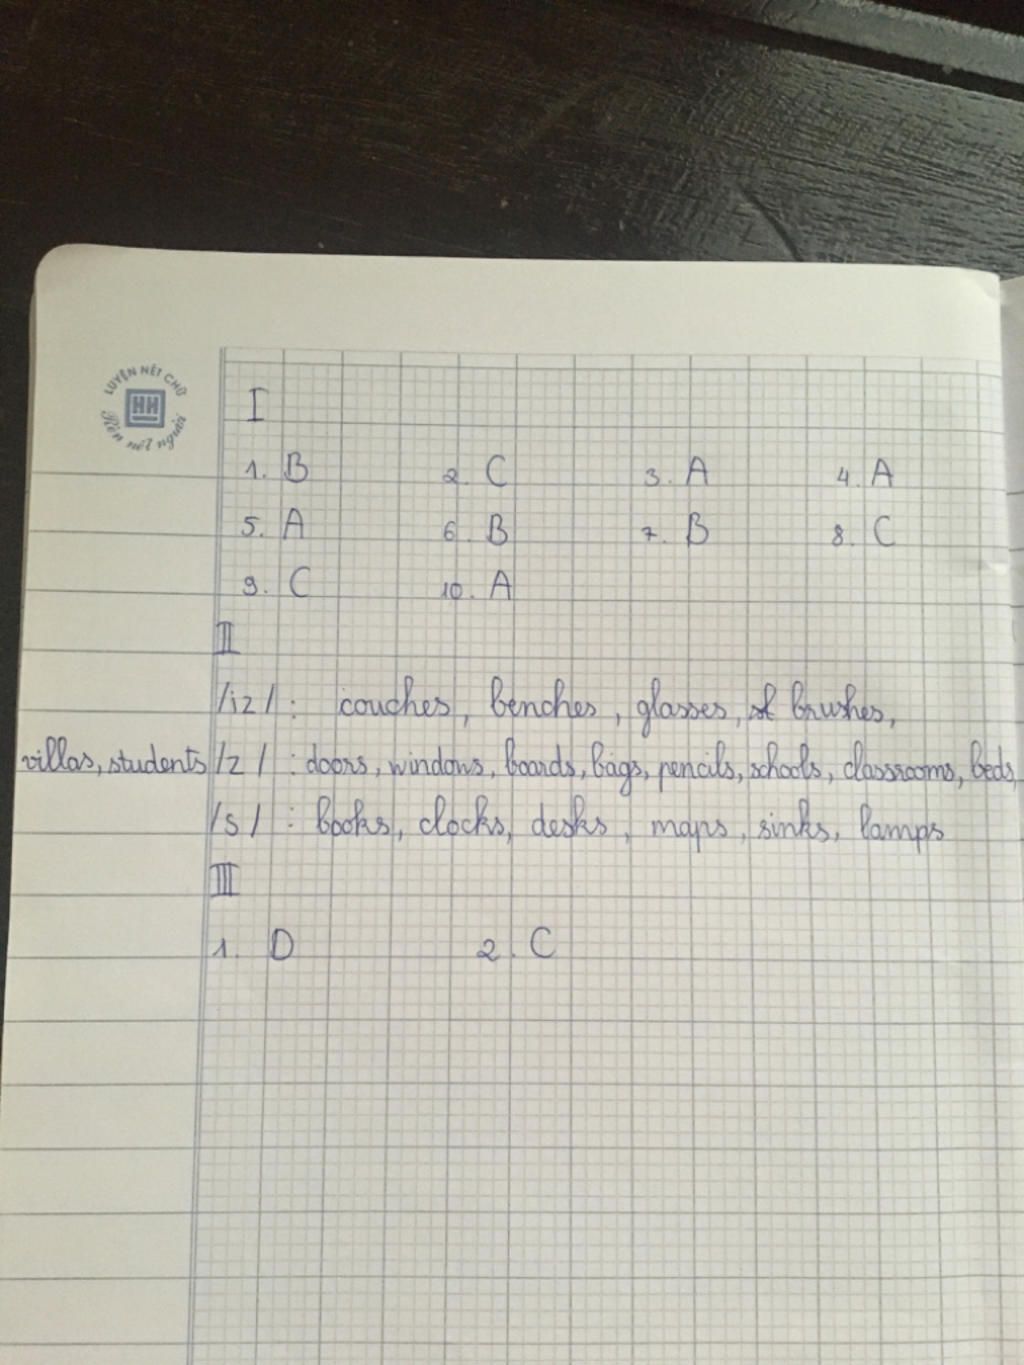 LUYỆN NÉT CHỮ
HH
Rèn nết người
I
1. B 2. C 3. A 4. A
5. A 6. B 7. B 8. C
9. C 10. A
II
/iz/ : couches, benches, glasses, brushes,
villas, students /z/ : doors, windows, boards, bags, pencils, schools, classrooms, beds,
/s/ : books, clocks, desks, maps, sinks, lamps
III
1. D 2. C